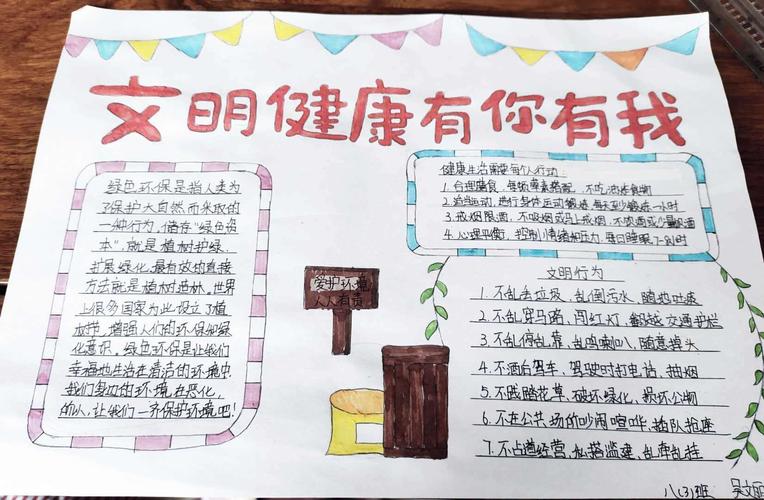 文明健康有你有我
绿色环保是指人类为
了保护大自然而采取的
一种行为,储存“绿色资
本”,就是植树护绿,
扩展绿化,最有效的直接
方法就是植树造林,世界
上很多国家为此设立了植
树节,增强人们的环保和绿
化意识。绿色环保是让我们
幸福地生活在清洁的环境中
我们身边的环境在恶化,
所以,让我们一齐保护环境吧!
健康生活需要每个人行动:
1.合理膳食,每场荤素搭配,不吃油炸食物
2.适当运动,进行身体运动锻炼,每天至少锻炼一小时
3.戒烟限酒,不吸烟或马上戒烟,不饮酒或少量饮酒
4.心理平衡,控制情绪和压力,每日睡眠7-8小时
爱护环境
人人有责
文明行为
1.不乱丢垃圾,乱倒污水,随地吐痰
2.不乱穿马路,闯红灯,翻越交通护栏
3.不乱停乱靠,乱鸣喇叭,随意掉头
4.不酒后驾车,驾驶时打电话,抽烟
5.不践踏花草,破坏绿化,损坏公物
6.不在公共场所吵闹喧哗,插队抢座
7.不占道经营,私搭滥建,乱牵乱挂
八(3)班 吴文